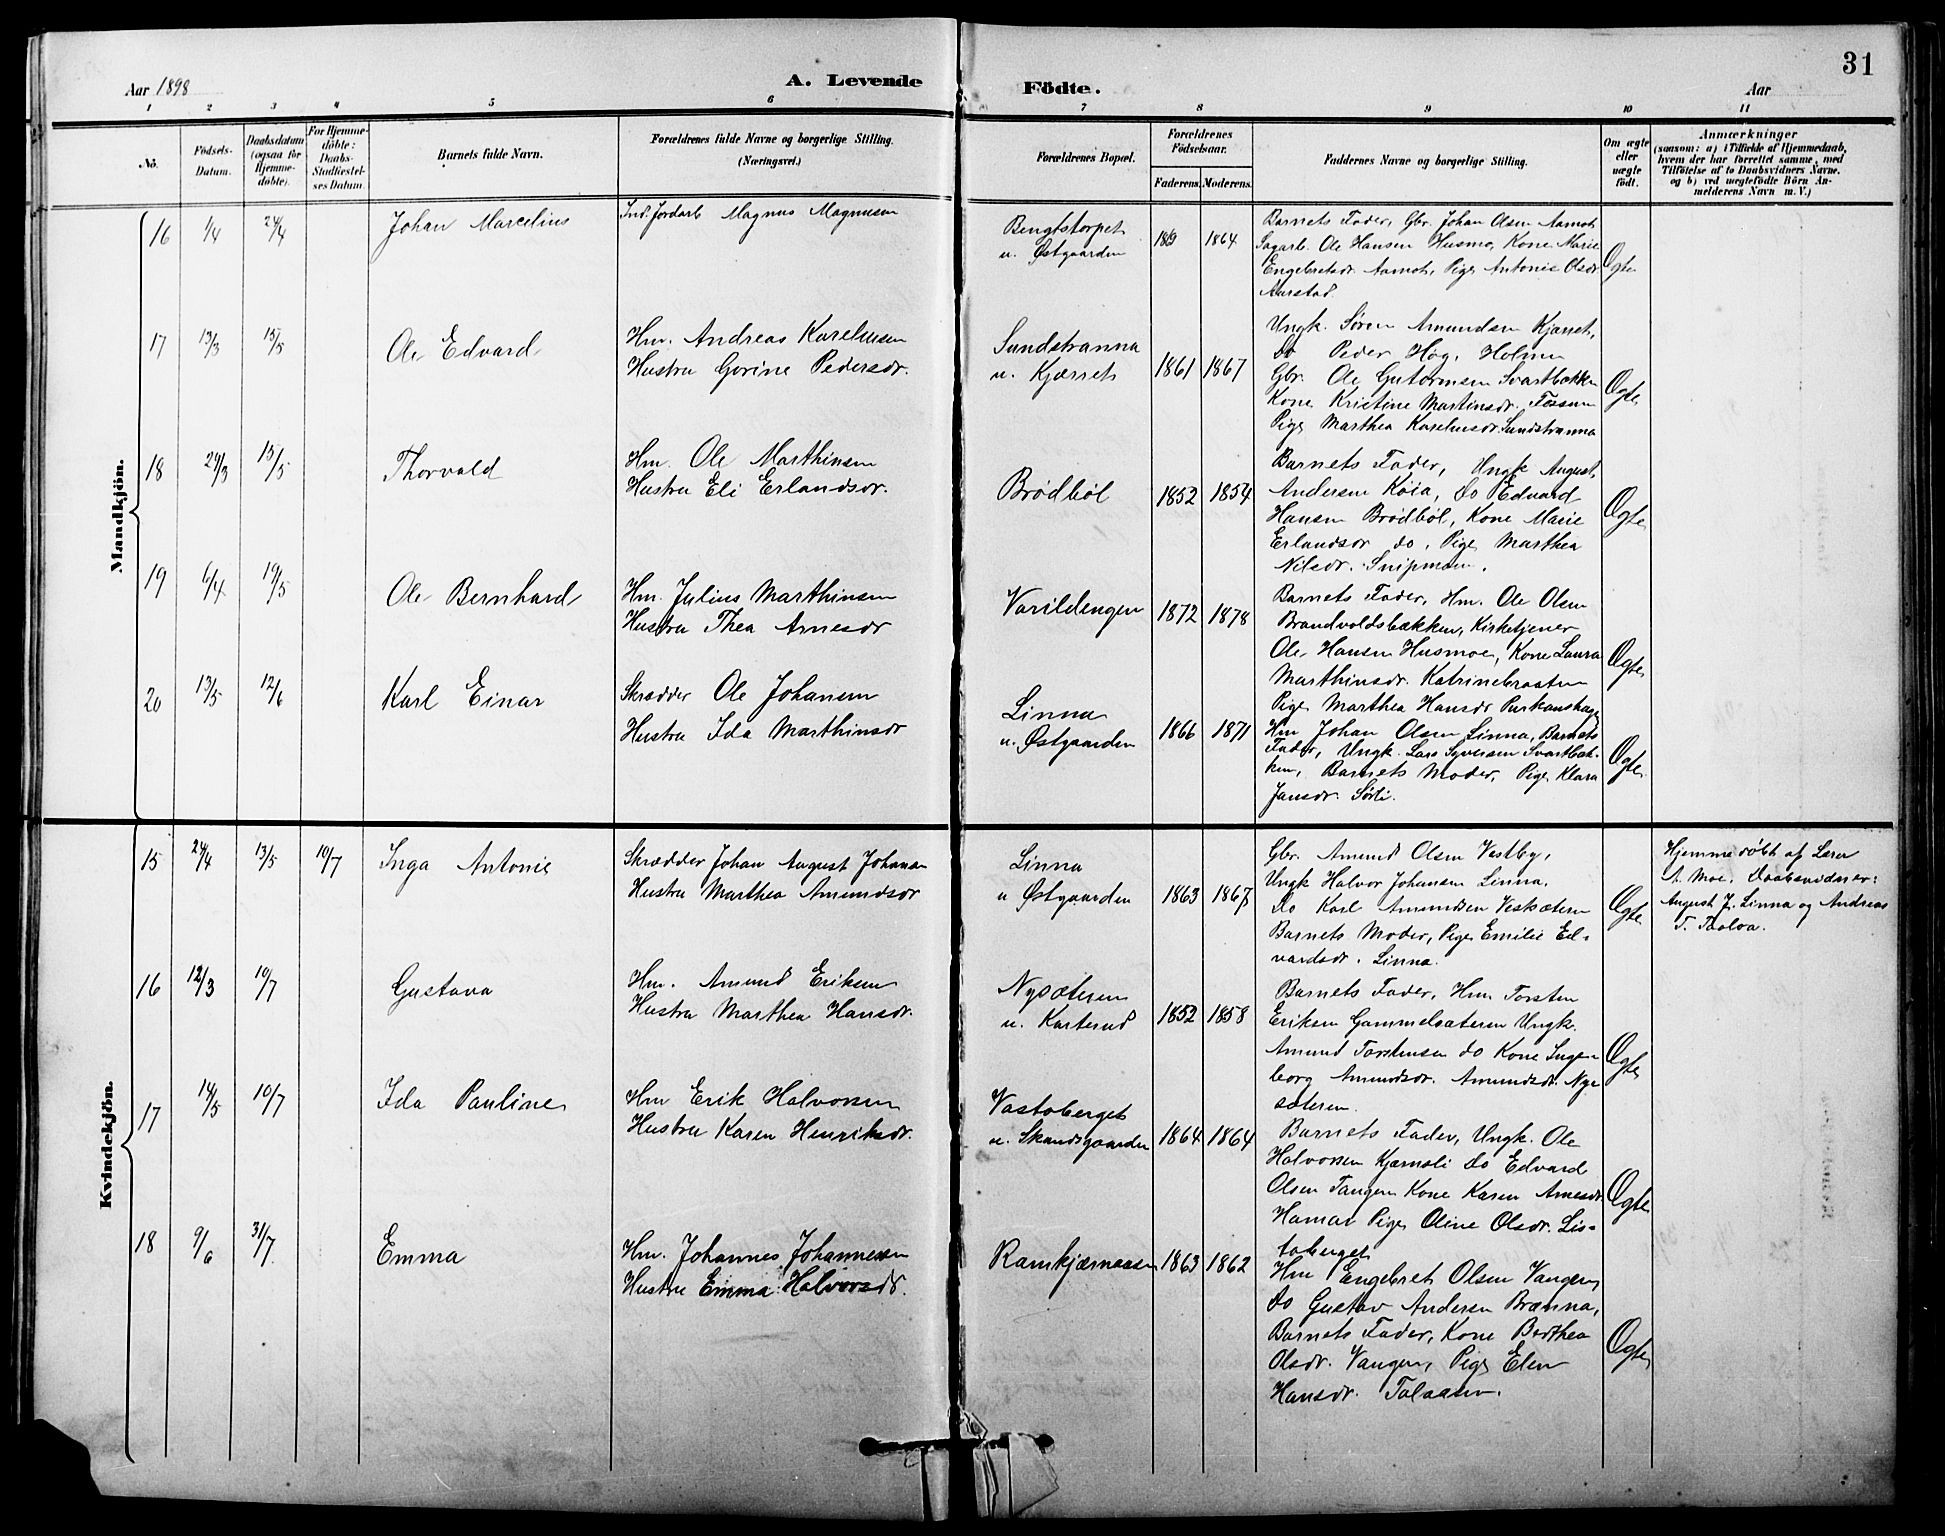 31
Aar 1898
A. Levende
Födte.
Aar
1 2 3 4 5 6 7 8 9 10 11
No.
Födsels-Datum.
Daabsdatum (ogsaa for Hjemmedöbte).
For Hjemmedöbte: Daabs-Stadfæstelses Datum.
Barnets fulde Navn.
Forældrenes fulde Navne og borgerlige Stilling. (Næringsvei.)
Forældrenes Bopæl.
Forældrenes Födselsaar.
Faderens. Moderens.
Faddernes Navne og borgerlige Stilling.
Om ægte eller uægte födt.
Anmærkninger
(saasom: a) i Tilfælde af Hjemmedaab, hvem der har forrettet samme, med Tilföielse af to Daabsvidners Navne, og b) ved uægtefödte Börn Anmelderens Navn m. V.)
Mandkjön.
16 1/4 24/4 Johan Marcelius
Ind. Jordarb Magnus Magnusen
Bengtstorpet
u. Østgaarden
1864
Barnets Fader, Gbr. Johan Olsen Aamot
Sagarb. Ole Hansen Husmo, Kone Marie
Engebretsdr. Aamot, Pige Antonie Olsdr
Aarstad.
Ægte
17 13/3 15/5 Ole Edvard
Hm. Andreas Karelusen
Hustru Gorine Pedersdr.
Sundstranna
u. Kjærret
1861 1867
Ungk. Sören Amundsen Kjærret,
Do Peder Høg. Holmen
Gbr. Ole Gutormsen Svartbækken
Kone Kristine Martinsdr. Fossum
Pige Marthea Karelusdr. Sundstranna
Ægte
18 29/3 15/5 Thorvald
Hm. Ole Marthinsen
Hustru Eli Erlandsdr.
Brødbøl
1852 1854
Barnets Fader, Ungk August
Andersen Køia, Do Edvard
Hansen Brødbøl, Kone Marie
Erlandsdr do, Pige Marthea
Nilsdr. Snipmoen.
Ægte
19 6/4 19/5 Ole Bernhard
Hm. Julius Marthinsen
Hustru Thea Arnesdr
Varildengen
1872 1878
Barnets Fader, Hm. Ole Olsen
Brandvoldsbækken, Kirketjener
Ole Hansen Husmoe, Kone Laura
Marthinsdr. Katrinebraaten
Pige Marthea Hansdr
Ægte
20 13/5 12/6 Karl Einar
Skrædder Ole Johansen
Hustru Ida Marthinsdr
Linna
u. Østgaarden
1866 1871
Hm Johan Olsen Linna, Barnets
Fader, Ungk. Lars Syversen Svartbæk-
ken, Barnets Moder, Pige Klara
Jansdr. Sørli.
Ægte
Kvindekjön.
15 24/4 13/5 10/7 Inga Antonie
Skrædder Johan August Johansen
Hustru Marthea Amundsdr
Linna
u Østgaarden
1863 1867
Gbr. Amund Olsen Vestby,
Ungk Halvor Johansen Linna.
Do Karl Amundsen Vesksætern
Barnets Moder, Pige Emilie Ed-
vardsdr. Linna.
Ægte
Hjemmedøbt af Lærer
A. Moe. Daabsvidner:
August J. Linna og Andreas
T. Taalva.
16 12/3 10/7 Gustava
Hm. Amund Eriksen
Hustru Marthea Hansdr.
Nysæteren
u. Karterud
1852 1858
Barnets Fader, Hm Torsten
Eriksen Gammelsæteren Ungk.
Amund Torstensen do Kone Inge-
borg Amundsdr. Amundsdr. Ny-
sæteren.
Ægte
17 14/5 10/7 Ida Pauline
Hm Erik Halvorsen
Hustru Karen Henriksdr.
Vastoberget
u. Skandsgaarden
1864 1864
Barnets Fader, Ungk. Ole
Halvorsen Kjærnsli Do Edvard
Olsen Tangen Kone Karen Arnesdr
Hamar Pige Oline Olsdr. Lis-
toberget
Ægte
18 9/6 31/7. Emma
Hm. Johannes Johannessen
Hustru Emma Halvorsdr.
Ramkjærnaasen
1863 1862
Hm Engebret Olsen Vangen,
Do Gustav Andersen Brænna,
Barnets Fader, Kone Berthea
Olsdr. Vangen, Pige Elen
Hansdr. Talaasen.
Ægte